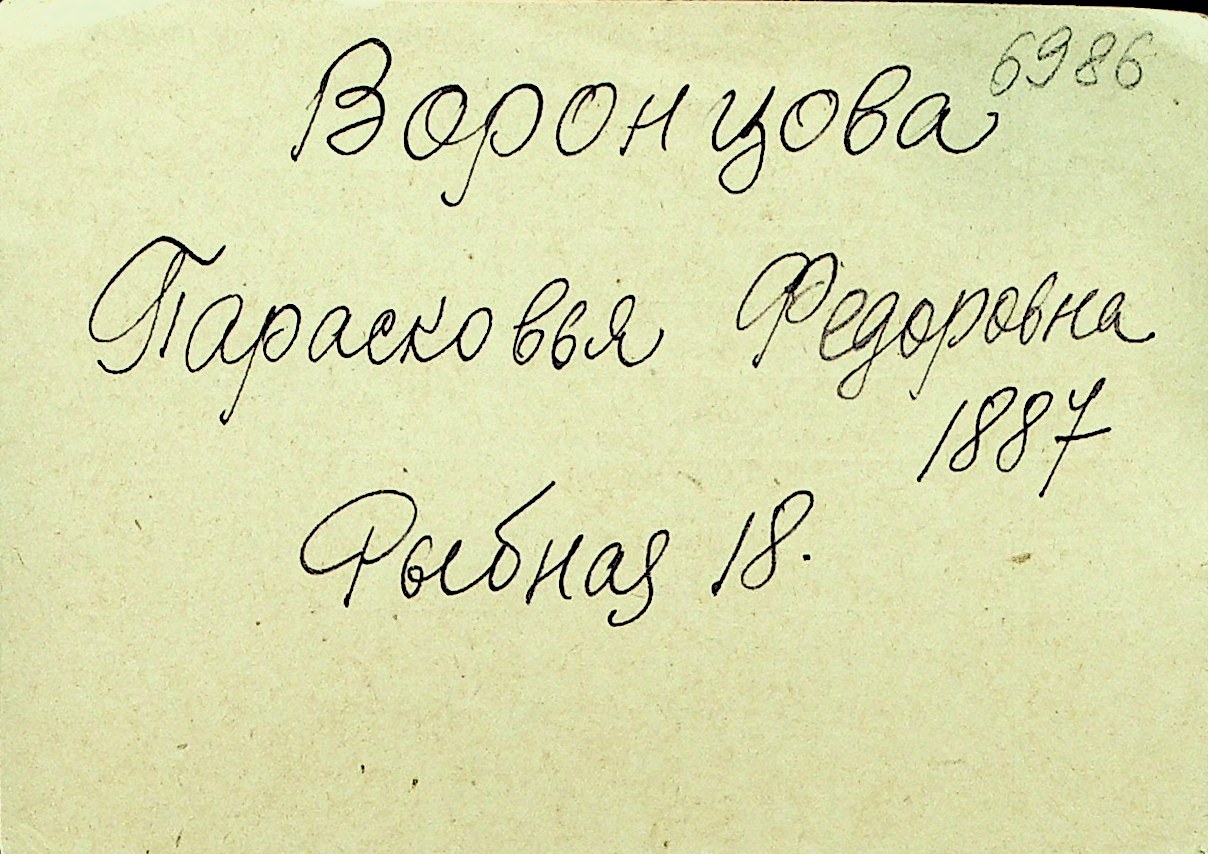 6986
Воронцова
Парасковья Федоровна
1887
Рыбная 18.